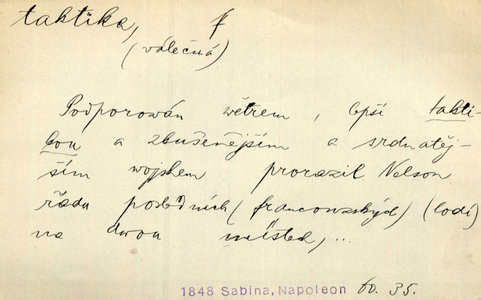 taktika, f
(válečná)
Podporowán wětrem, lepší takti-
kou a zkušenějším a srdnatěj-
ším wojskem prorazil Nelson
řadu posledních (francouzských) (lodí)
na dwou místech, ...
1848 Sabina, Napoleon 60. 35.